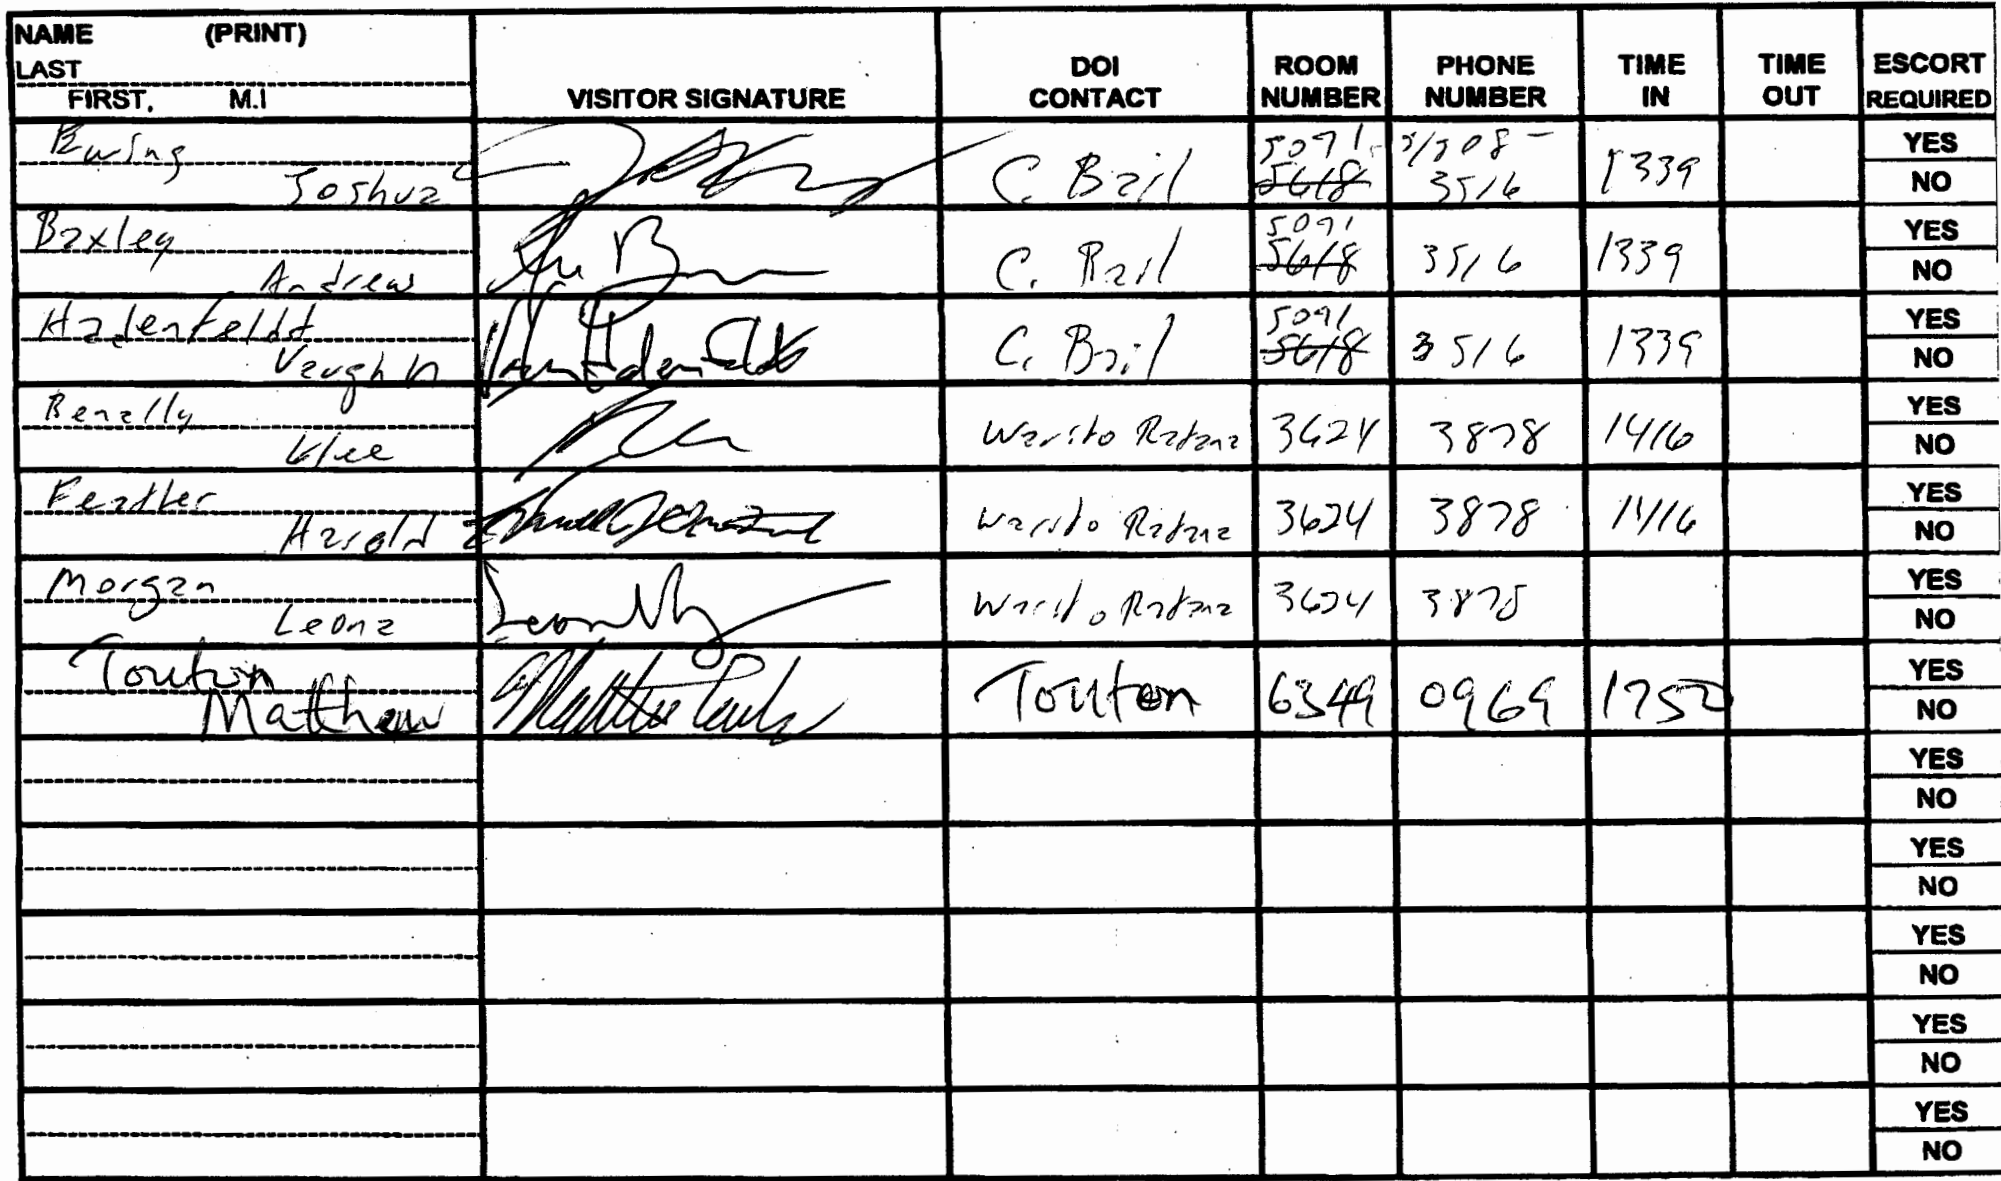 NAME (PRINT)
LAST
FIRST, M.I
VISITOR SIGNATURE
DOI CONTACT
ROOM NUMBER
PHONE NUMBER
TIME IN
TIME OUT
ESCORT REQUIRED
Ewing Joshua C. Bail 5091 5618 3516 1339 YES NO
Baxley Andrew C. Bail 5091 5618 3516 1339 YES NO
Hadenfeldt Vaughn C. Bail 5091 5618 3516 1339 YES NO
Benally Klee Warito Ratana 3624 3878 1416 YES NO
Feather Harold Warito Ratana 3624 3878 1416 YES NO
Morgan Leona Warito Ratana 3624 3878 YES NO
Touton Matthew Touton 6349 0969 1752 YES NO
YES
NO
YES
NO
YES
NO
YES
NO
YES
NO